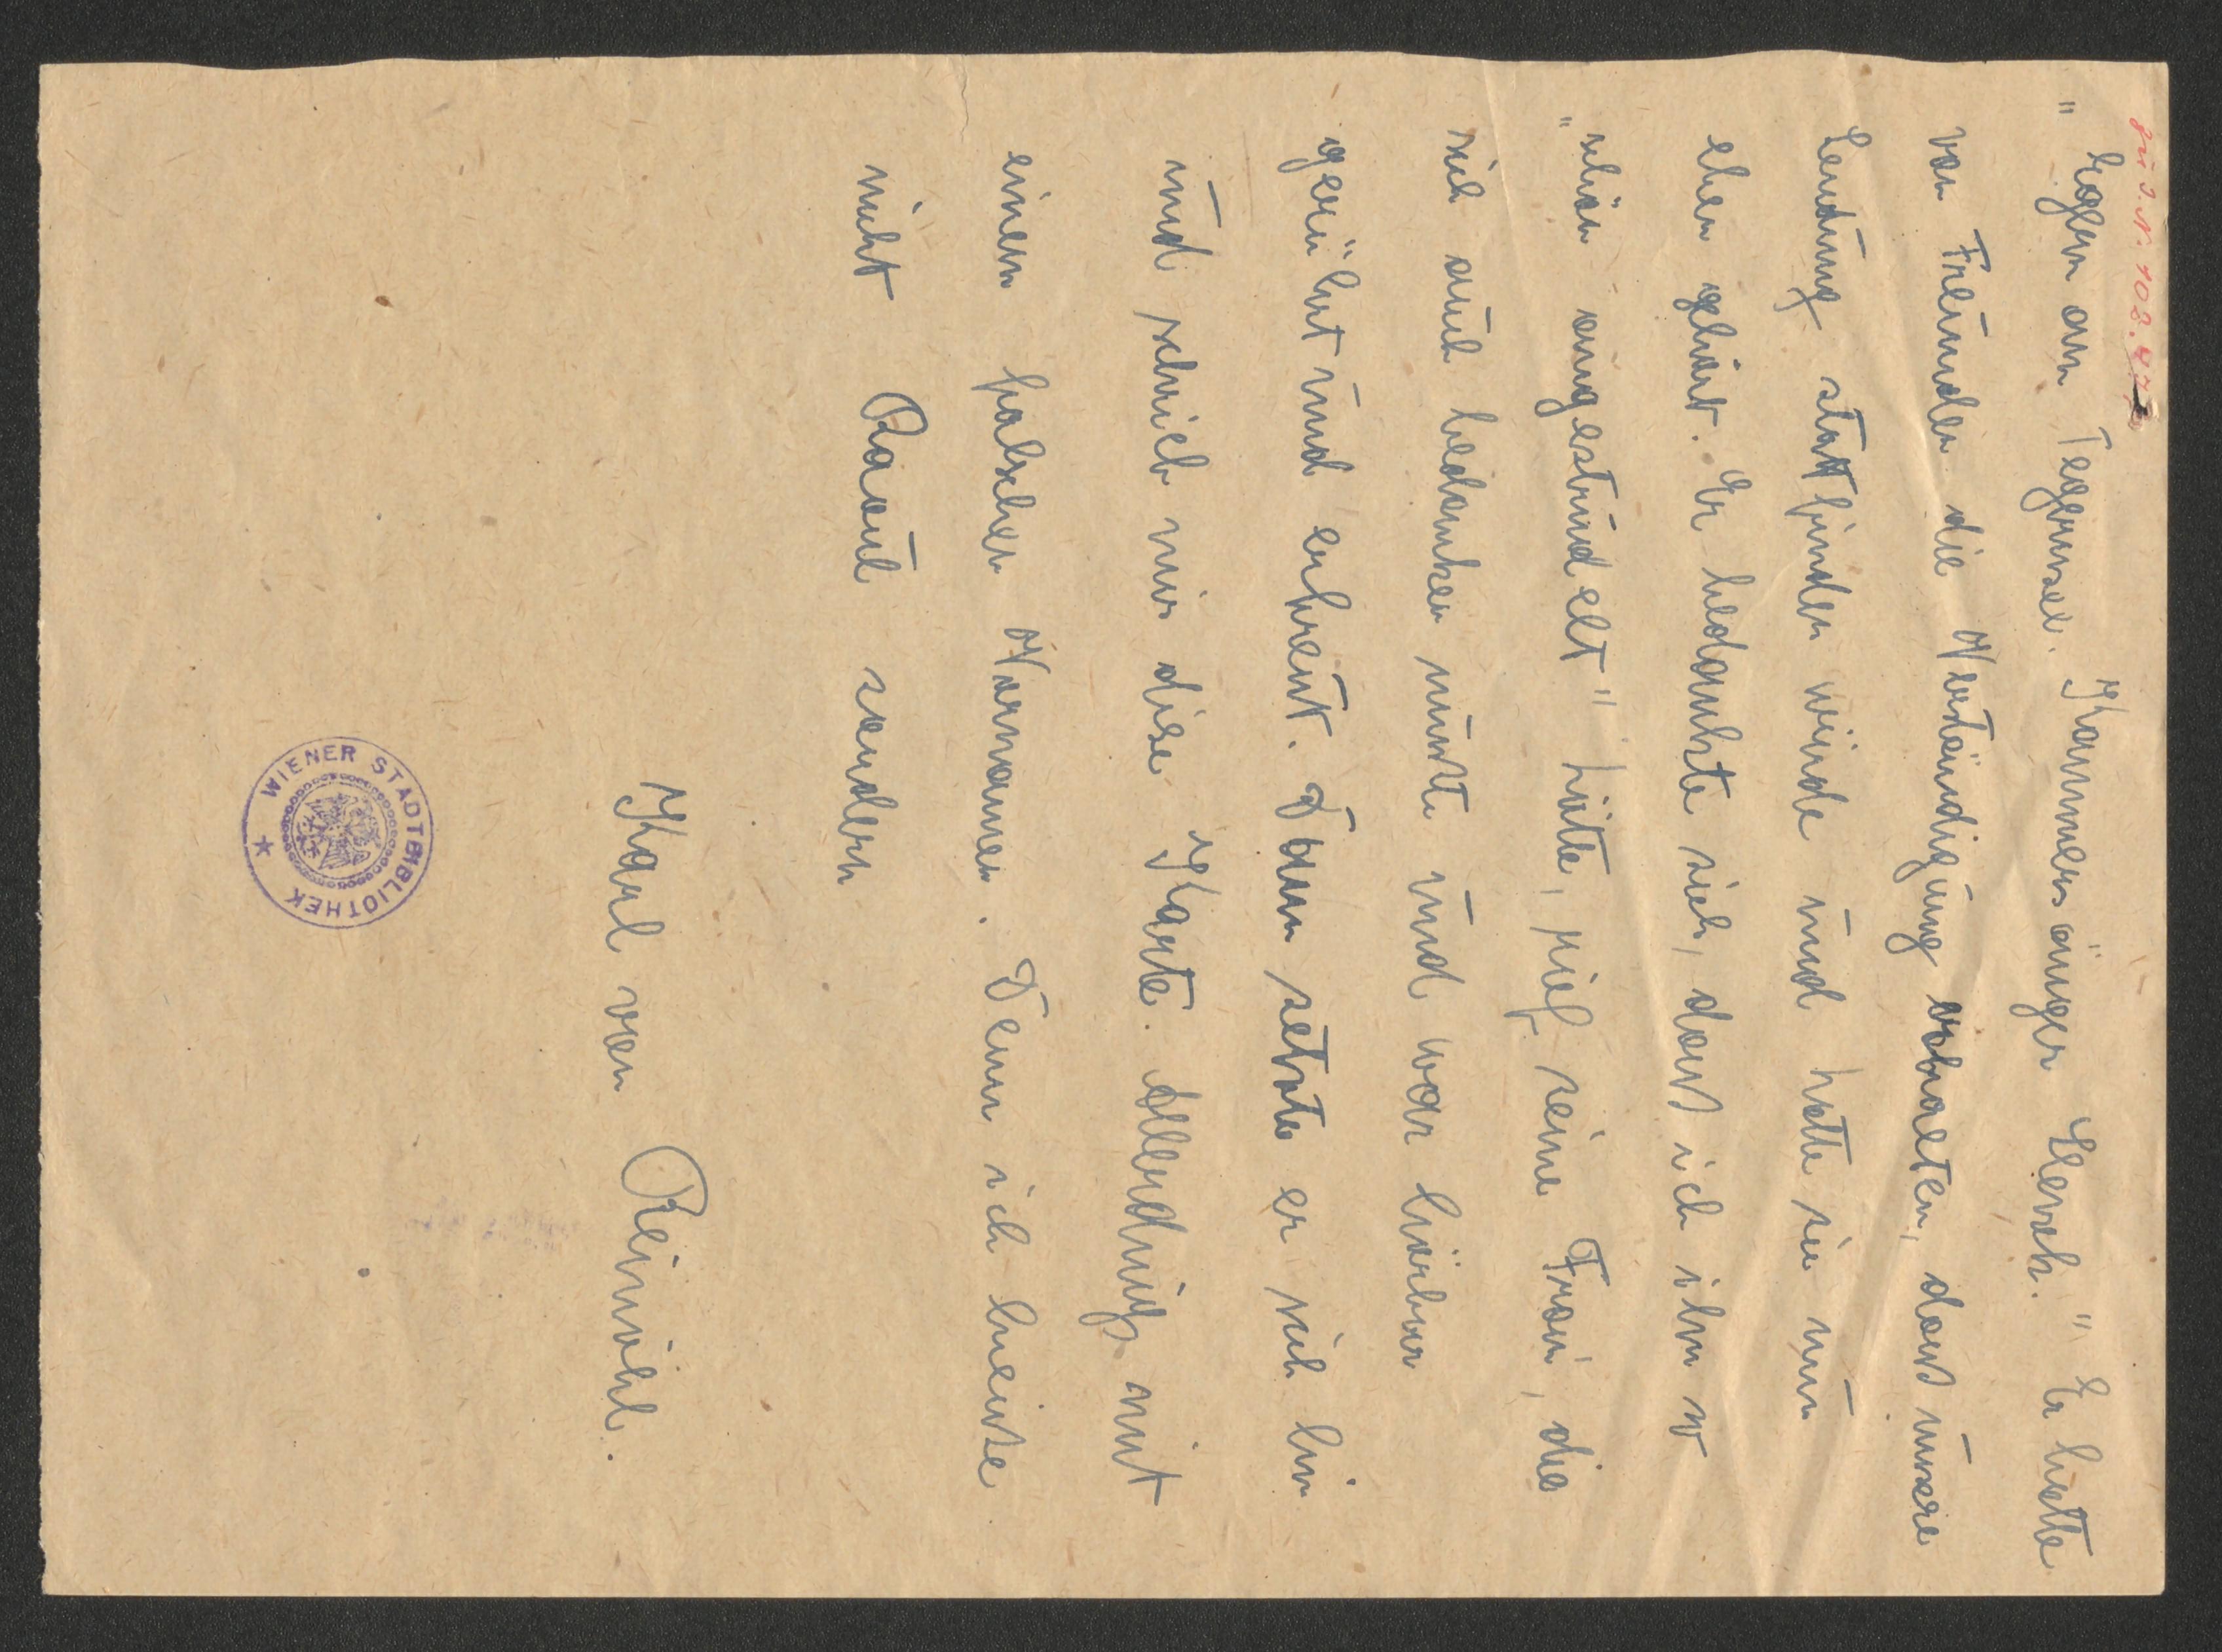 zu J.N. 102.
"Egern am Tegernsee. Kammersänger Slezak." Er hatte
von Freunden die Verständigung erhalten, dass unsere
Sendung stattfinden würde und hatte sie nun
eben gehört. Er bedankte sich, dass ich ihn so
"schön angestrudelt" hätte, rief seine Frau, die
sich auch bedanken musste und war hörbar
gerührt und erfreut. Dann setzte er sich hin
und schrieb mir diese Karte. Allerdings mit
einem falschen Vornamen. Denn ich heisse
nicht Raoul sondern
Karl von Reinöhl.
WIENER STADTBIBLIOTHEK